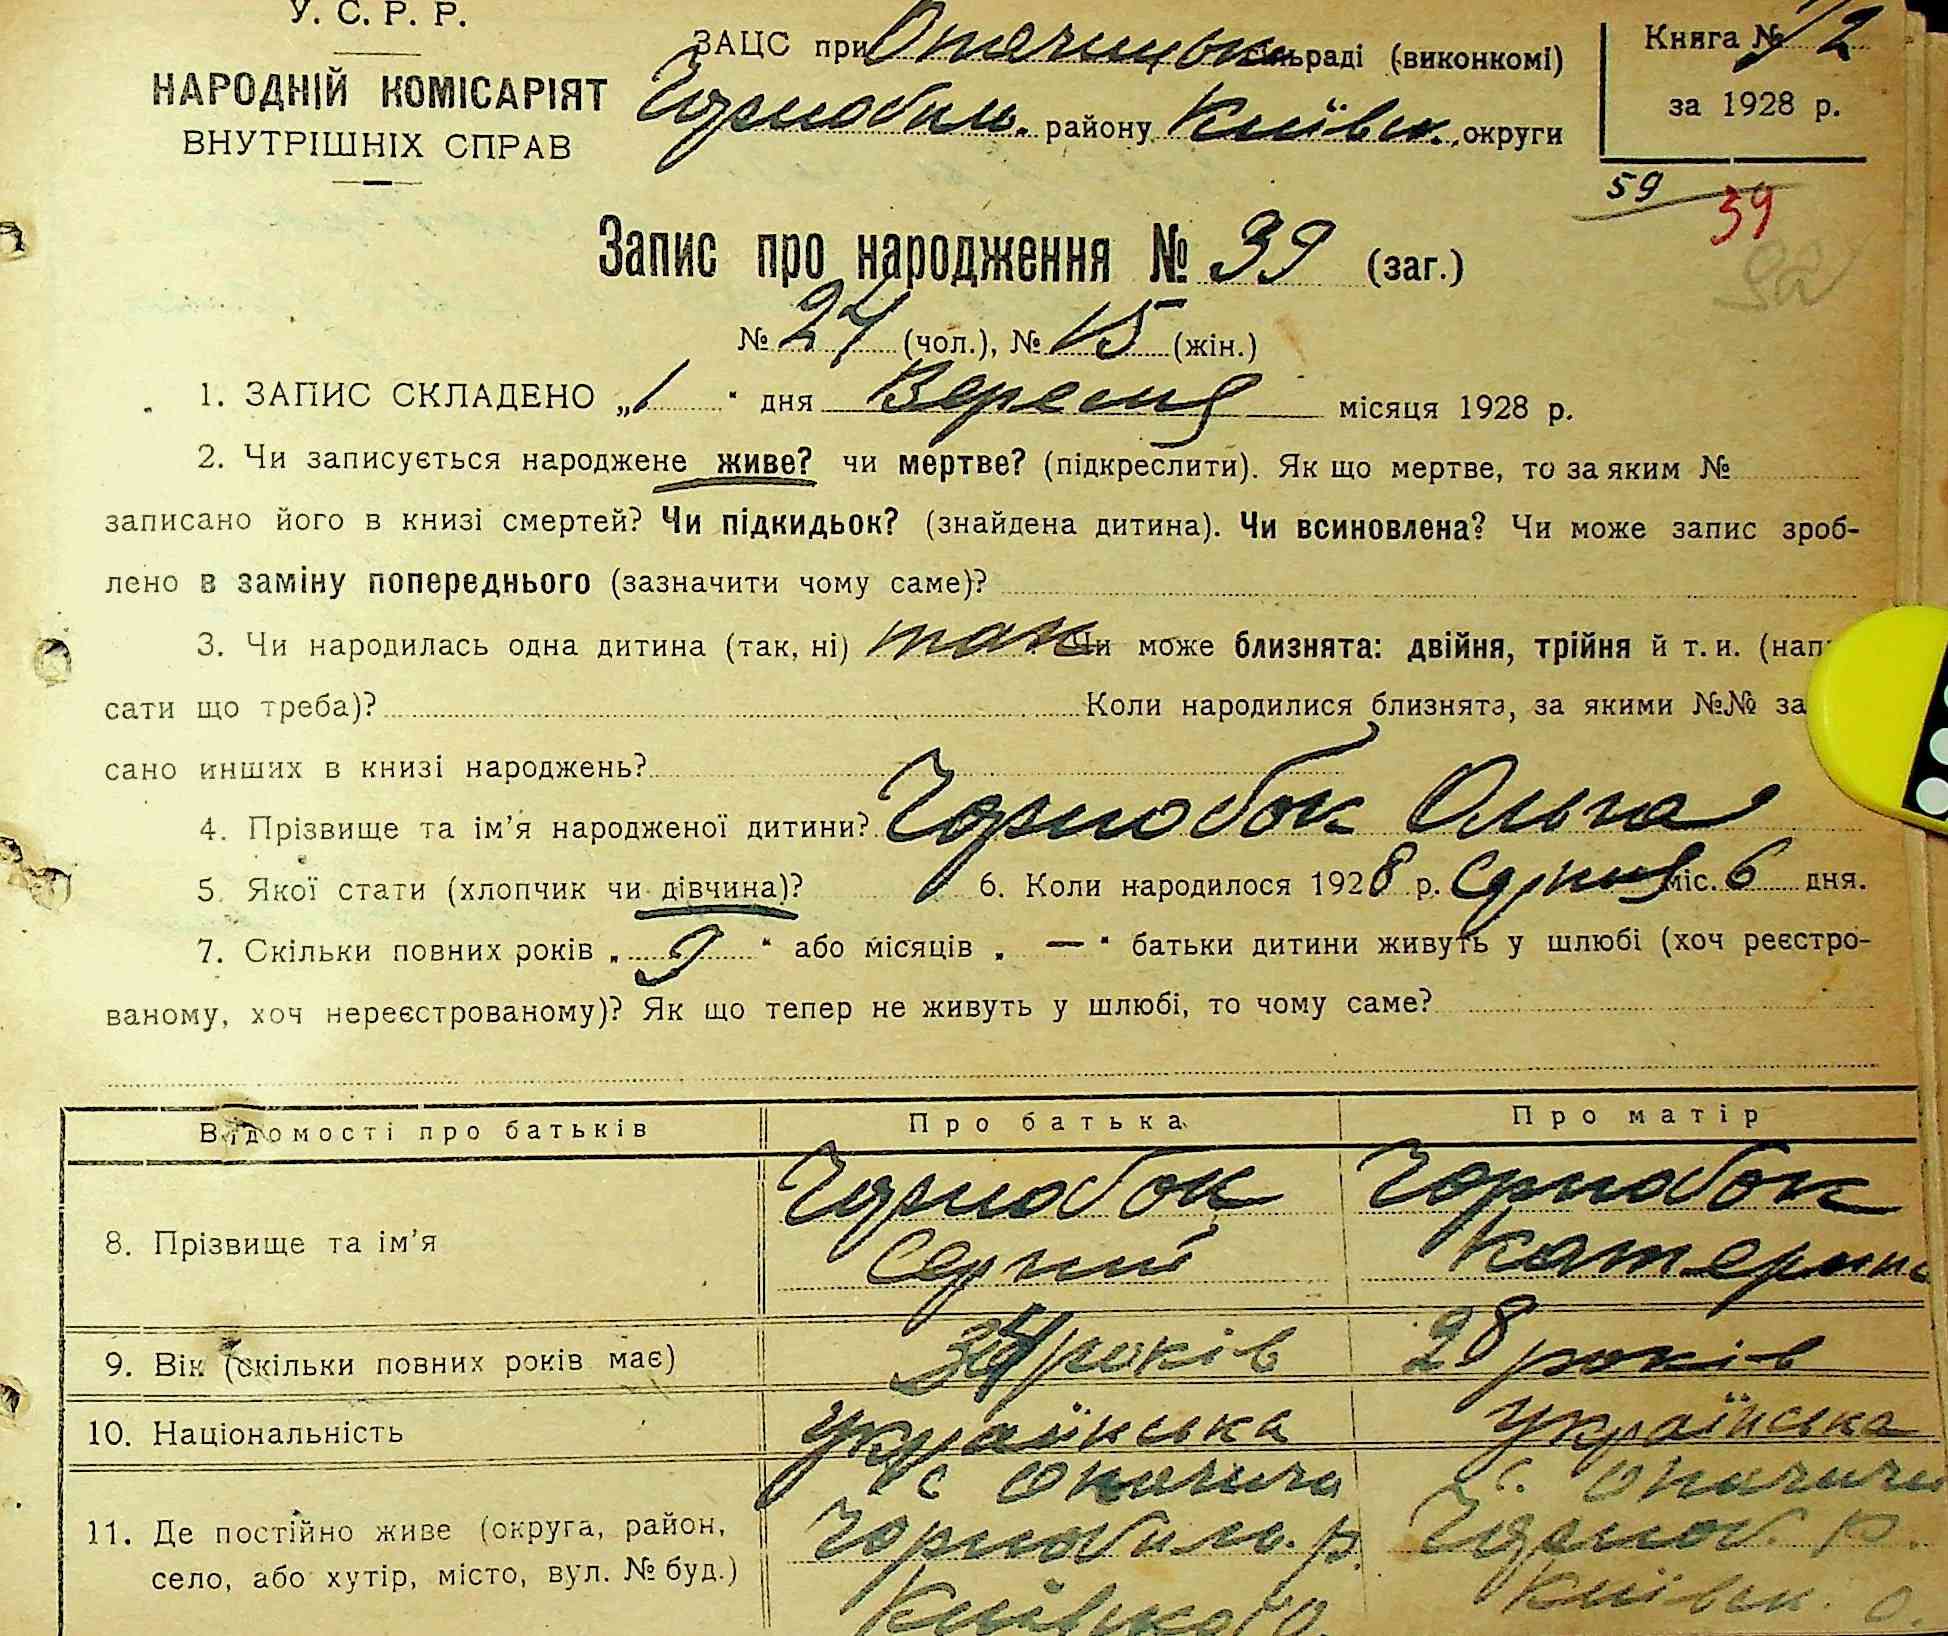 У. С. Р. Р.
НАРОДНІЙ КОМІСАРІЯТ
ВНУТРІШНІХ СПРАВ
ЗАЦС при Опачицьк. сільраді (виконкомі)
Чорнобил. району Київськ. округи
Книга № 1/2
за 1928 р.
59 39
92
Запис про народження № 39 (заг.)
№ 24 (чол.), № 15 (жін.)
1. ЗАПИС СКЛАДЕНО „1" дня Вересня місяця 1928 р.
2. Чи записується народжене живе? чи мертве? (підкреслити). Як що мертве, то за яким №
записано його в книзі смертей? Чи підкидьок? (знайдена дитина). Чи всиновлена? Чи може запис зроб-
лено в заміну попереднього (зазначити чому саме)?
3. Чи народилась одна дитина (так, ні) так Чи може близнята: двійня, трійня й т. и. (напи
сати що треба)? Коли народилися близнята, за якими №№ за
сано инших в книзі народжень?
4. Прізвище та ім'я народженої дитини? Чорнобок Ольга
5. Якої стати (хлопчик чи дівчина)? 6. Коли народилося 1928 р. Серпня міс. 6 дня.
7. Скільки повних років „9" або місяців „—" батьки дитини живуть у шлюбі (хоч реєстро-
ваному, хоч нереєстрованому)? Як що тепер не живуть у шлюбі, то чому саме?
Відомості про батьків Про батька Про матір
8. Прізвище та ім'я Чорнобок Сергій Чорнобок Катерина
9. Вік (скільки повних років має) 34 років 28 років
10. Національність Українська Українська
11. Де постійно живе (округа, район,
село, або хутір, місто, вул. № буд.)
с Опачичі
Чорнобиль. р.
Київсько О.
с. Опачичі
Чорноб. р.
Київськ. о.